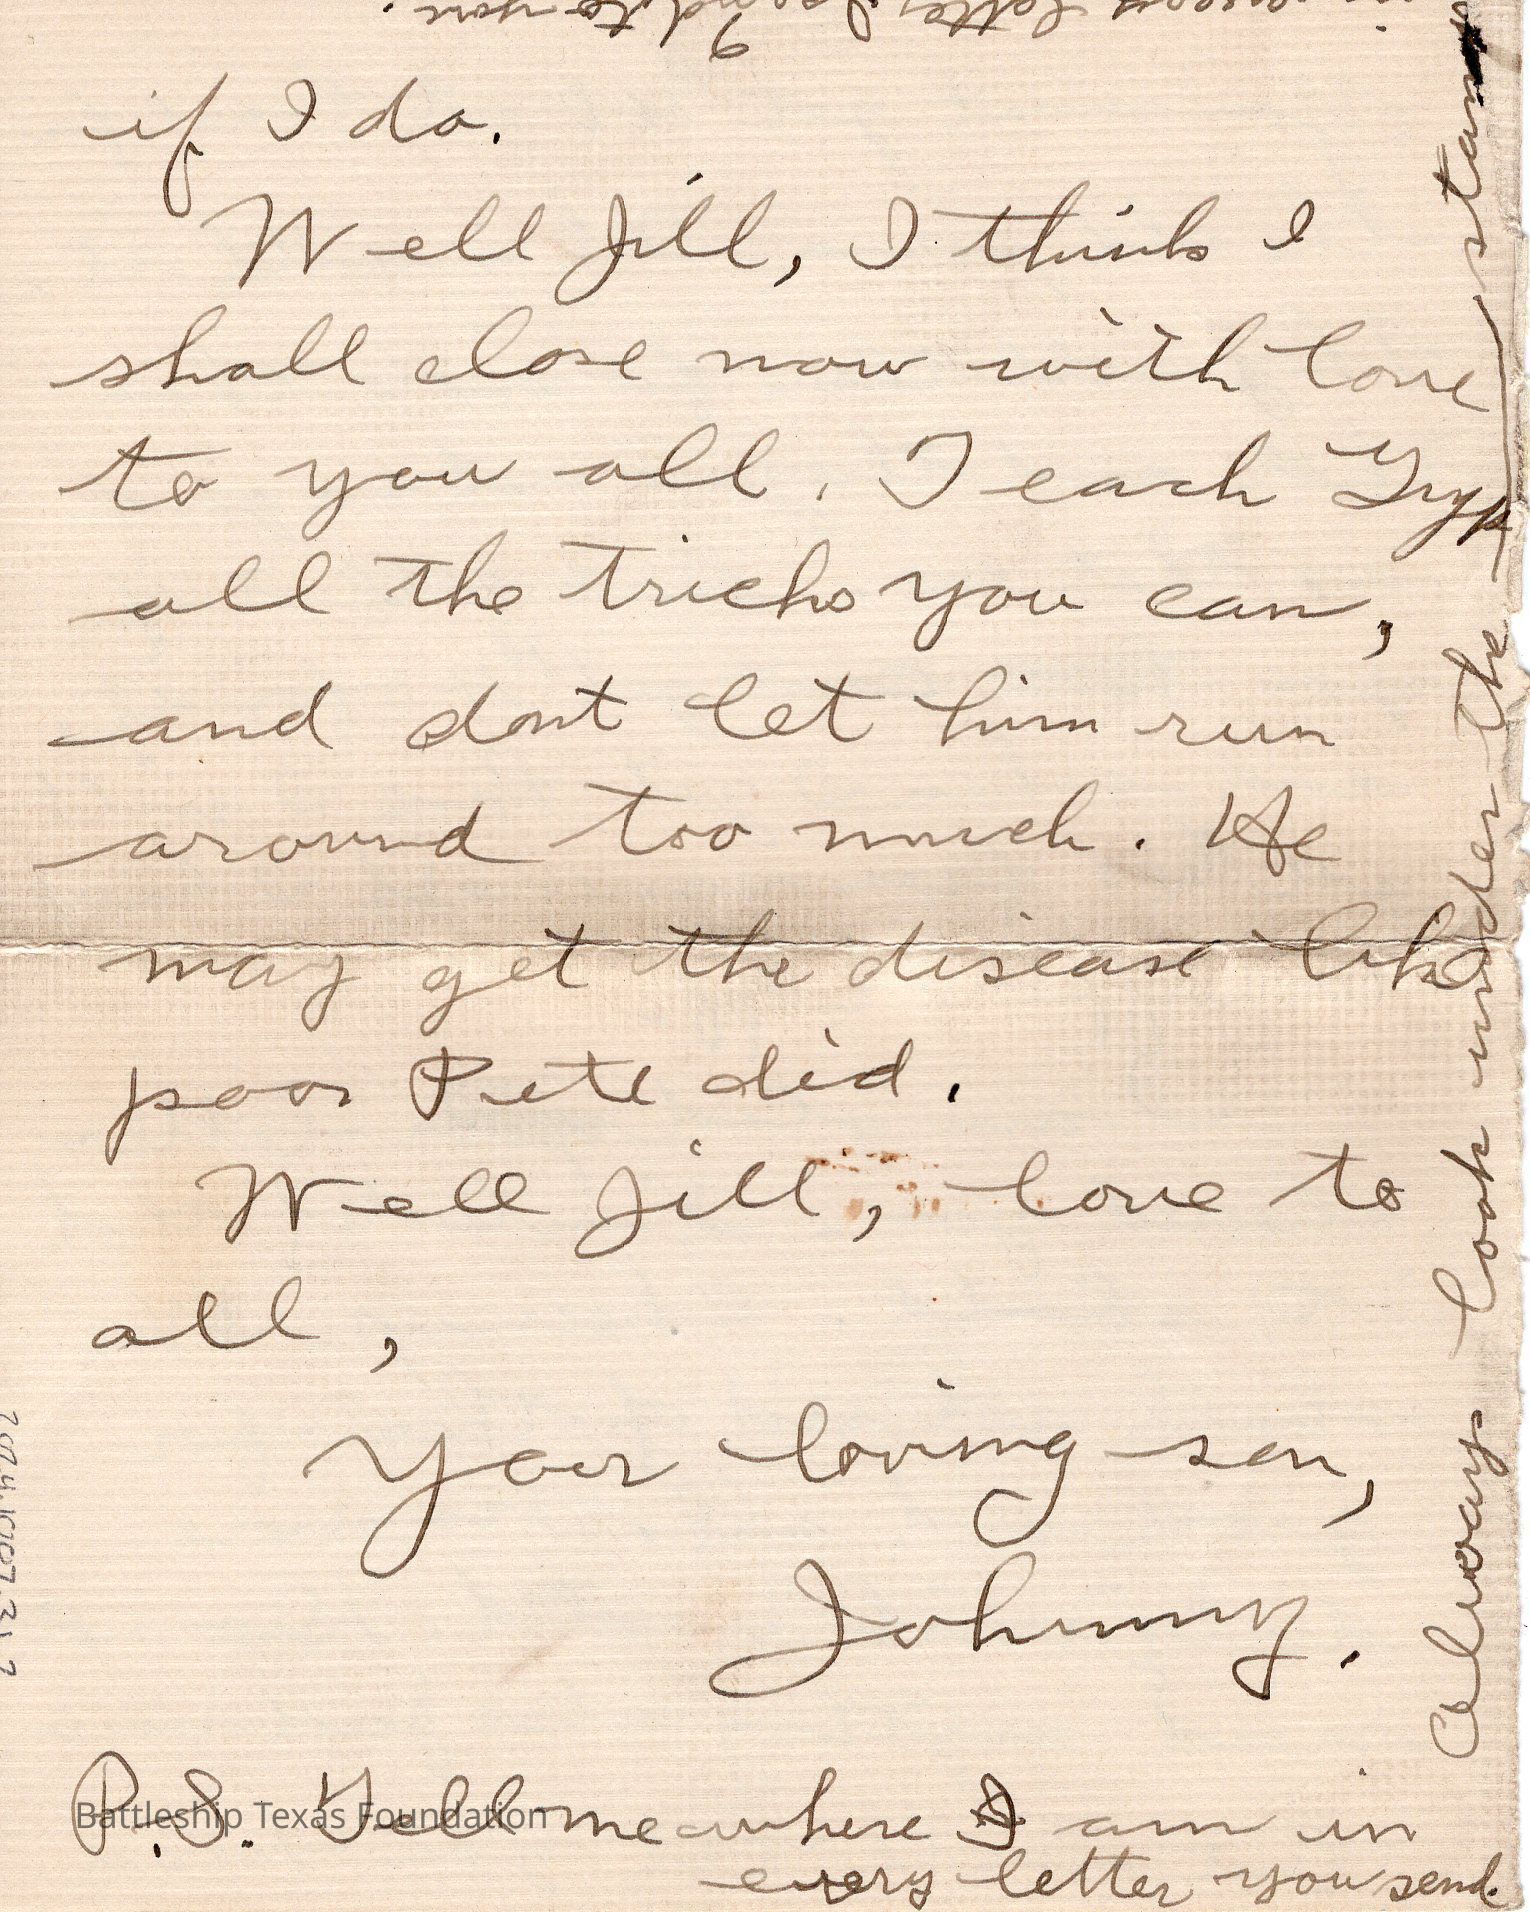 if I do.
Well Jill, I think I
shall close now with love
to you all. Teach Gyp
all the tricks you can,
and dont let him run
around too much. He
may get the disease like
poor Pete did.
Well Jill, love to
all,
Your loving son,
Johnny.
P.S. Tell me where I am in
every letter you send.
Always look under the stamp
in every letter I send to you.
Battleship Texas Foundation